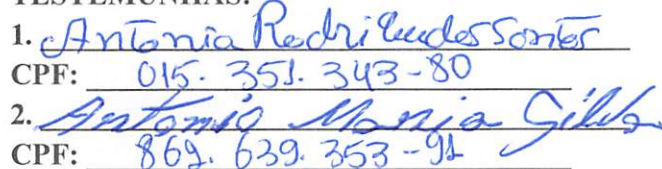 TESTEMUNHAS:
1. Antonia Rodrigues dos Santos
CPF: 015. 351. 343-80
2. Antonio Maria Silva
CPF: 869. 639. 353-91